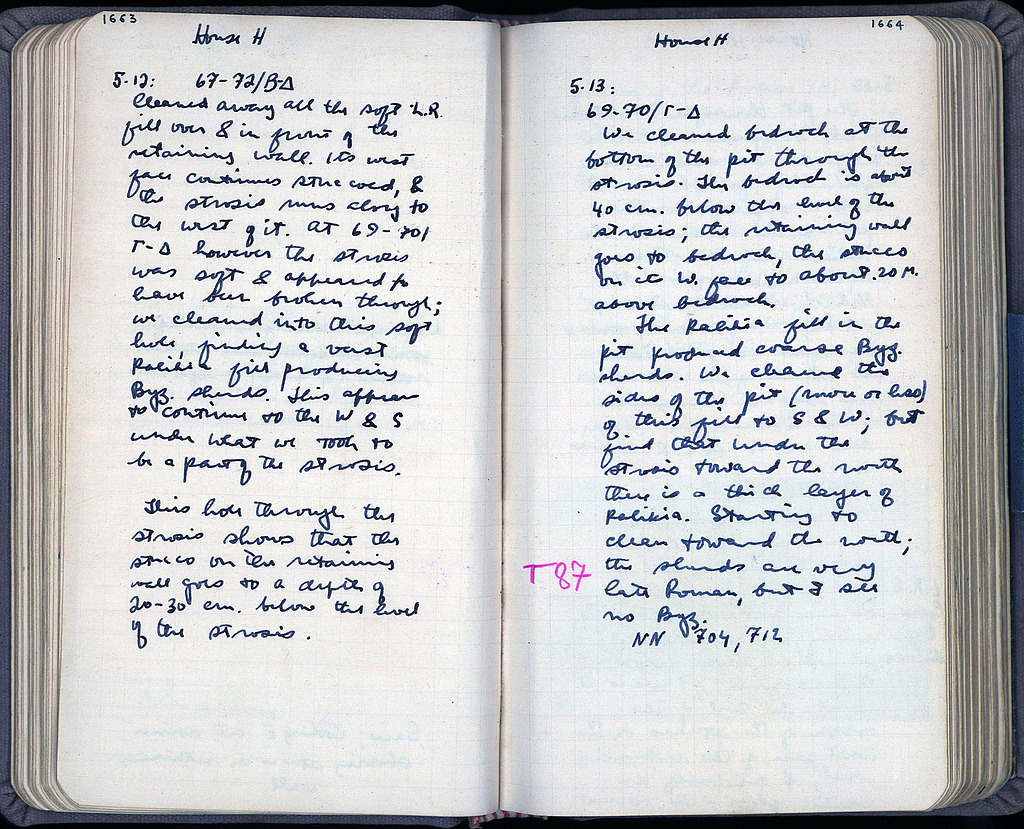 1663
House H
5.12: 67-72/B-Δ
Cleaned away all the soft L.R.
fill over & in front of the
retaining wall. Its west
face continues stuccoed, &
the strosis runs along to
the west of it. At 69-70/
Γ-Δ however the strosis
was soft & appeared to
have been broken through;
we cleaned into this soft
hole, finding a vast
Ralikia fill producing
Byz. sherds. This appears
to continue to the W & S
under what we took to
be a part of the strosis.
This hole through the
strosis shows that the
stucco on the retaining
wall goes to a depth of
20-30 cm. below the level
of the strosis.
1664
House H
5.13:
69-70/Γ-Δ
We cleaned bedrock at the
bottom of the pit through the
strosis. The bedrock is about
40 cm. below the level of the
strosis; the retaining wall
goes to bedrock, the stucco
on its W. face to about .20 M.
above bedrock.
The Ralikia fill in the
pit produced coarse Byz.
sherds. We cleaned the
sides of the pit (more or less)
of this fill to S & W; but
find that under the
strosis toward the north
there is a thick layer of
Ralikia. Starting to
clean toward the north;
the sherds are very
late Roman, but I see
no Byz.
NN 704, 712
T 87